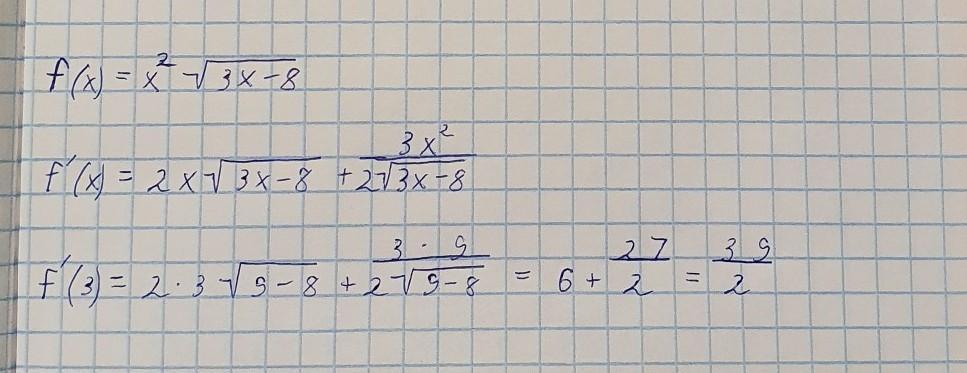 f(x) = x² √(3x-8)
f'(x) = 2x√(3x-8) + 3x²/(2√(3x-8))
f'(3) = 2·3 √(9-8) + (3·9)/(2√(9-8)) = 6 + 27/2 = 39/2